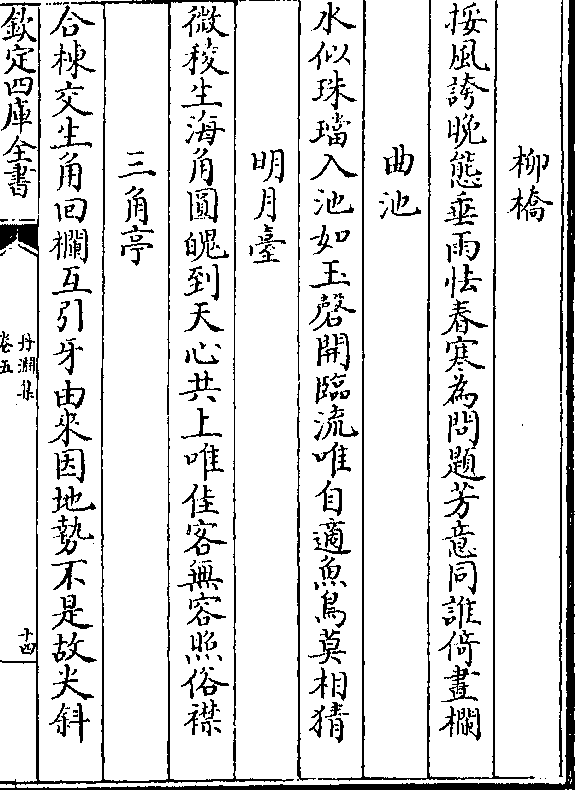 柳橋
挼風誇晚態垂雨怯春寒為問題芳意同誰倚畫欄
曲池
水似珠璫入池如玉磬開臨流唯自適魚鳥莫相猜
明月臺
微稜生海角圓魄到天心共上唯佳客無容照俗襟
三角亭
合棟交生角回欄互引牙由來因地勢不是故尖斜
欽定四庫全書
丹淵集
卷五
十四